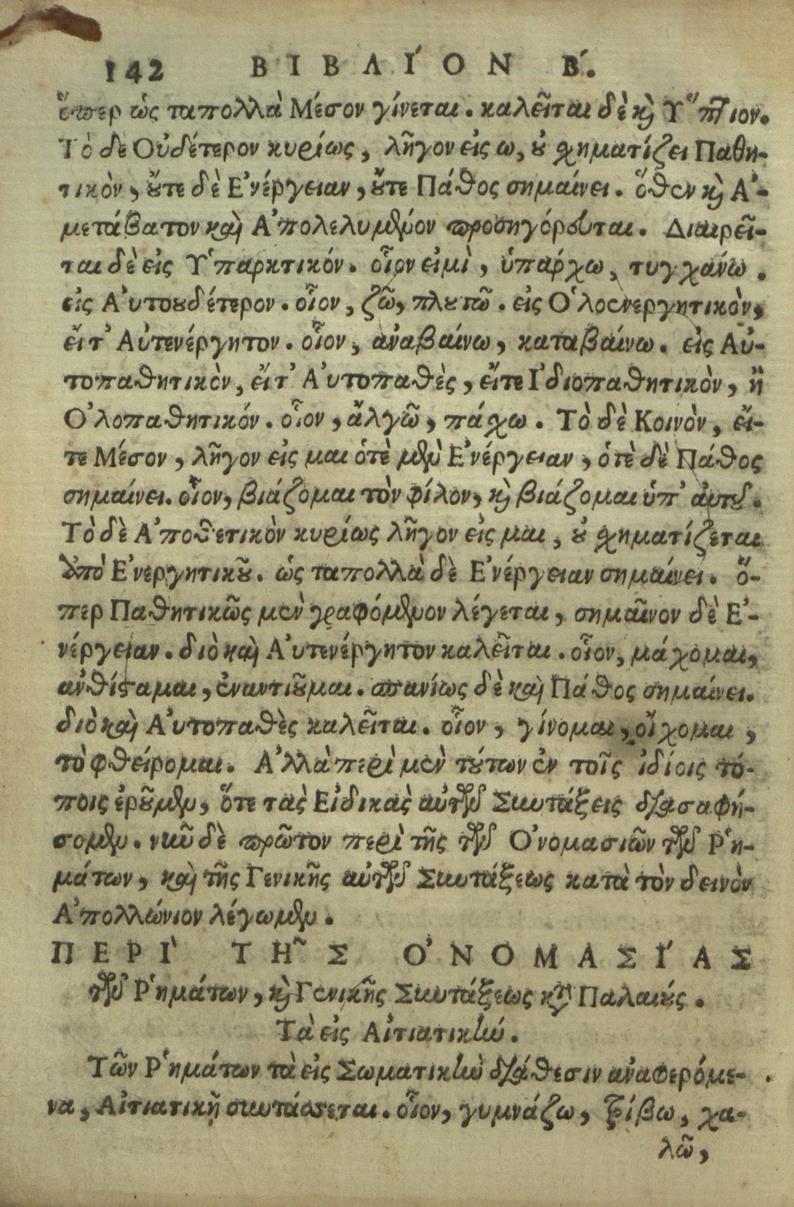 142 ΒΙΒΛΙ´ΟΝ Β´.
ὅπερ ὡς ταπολλὰ Μέσον γίνεται. καλεῖται δὲ κὶ Υ῞πτιον.
Τὸ δὲ Οὐδέτερον κυρίως, λῆγον εἰς ω, οὐ σχηματίζει Παθη-
τικὸν, οὔτε δὲ Ε᾽νέργειαν, οὔτε Πάθος σημαίνει. ὅθεν κὶ Α᾽-
μετάβατον καὶ Α᾽πολελυμένον προσηγόρευται. Διαιρεῖ-
ται δὲ εἰς Υ῾παρκτικόν. οἷον εἰμὶ, ὑπάρχω, τυγχάνω.
εἰς Αὐτουδέτερον. οἷον, ζῶ, πλουτῶ. εἰς Ο῾λοενεργητικὸν,
εἴτ᾽ Αὐτενέργητον. οἷον, ἀναβαίνω, καταβαίνω. εἰς Αὐ-
τοπαθητικὸν, εἴτ᾽ Αὐτοπαθὲς, εἴτε Ι᾽διοπαθητικὸν, ἢ
Ο῾λοπαθητικόν. οἷον, ἄλγῶ, πάχω. Τὸ δὲ Κοινὸν, εἴ-
τε Μέσον, λῆγον εἰς μαι ὁτὲ μὲν Ε᾽νέργειαν, ὁτὲ δὲ Πάθος
σημαίνει. οἷον, βιάζομαι τὸν φίλον, κὶ βιάζομαι ὑπ᾽ αὐτοῦ.
Τὸ δὲ Α᾽ποθετικὸν κυρίως λῆγον εἰς μαι, οὐ σχηματίζεται
ὑπὸ Ε᾽νεργητικοῦ. ὡς ταπολλὰ δὲ Ε᾽νέργειαν σημαίνει. ὅ-
περ Παθητικῶς μὲν γραφόμενον λέγεται, σημαῖνον δὲ Ε᾽-
νέργειαν. διὸ καὶ Αὐτενέργητον καλεῖται. οἷον, μάχομαι,
ἀνθίσταμαι, ἐναντιοῦμαι. σπανίως δὲ καὶ Πάθος σημαίνει.
διὸ καὶ Αὐτοπαθὲς καλεῖται. οἷον, γίνομαι, οἴχομαι,
τὸ φθείρομαι. Α᾽λλὰ περὶ μὲν τούτων ἐν τοῖς ἰδίοις τό-
ποις ἐροῦμεν, ὅτε τὰς Εἰδικὰς αὐτῶν Συντάξεις διασαφή-
σομεν. νῦν δὲ πρῶτον περὶ τῆς τῶν Ο᾽νομασιῶν τῶν Ρ῾η-
μάτων, καὶ τῆς Γενικῆς αὐτῶν Συντάξεως κατὰ τὸν δεινὸν
Α᾽πολλώνιον λέγωμεν.
ΠΕΡΙ` ΤΗ῀Σ Ο᾽ΝΟΜΑΣΙ´ΑΣ
τῶν Ρ῾ημάτων, κὶ Γενικῆς Συντάξεως κτ᾽ Παλαιούς.
Τὰ εἰς Αἰτιατικὴν.
Τῶν Ρ῾ημάτων τὰ εἰς Σωματικὴν διάθεσιν ἀναφερόμε-
να, Αἰτιατικῇ συντάσσεται. οἷον, γυμνάζω, τρίβω, χα-
λῶ,